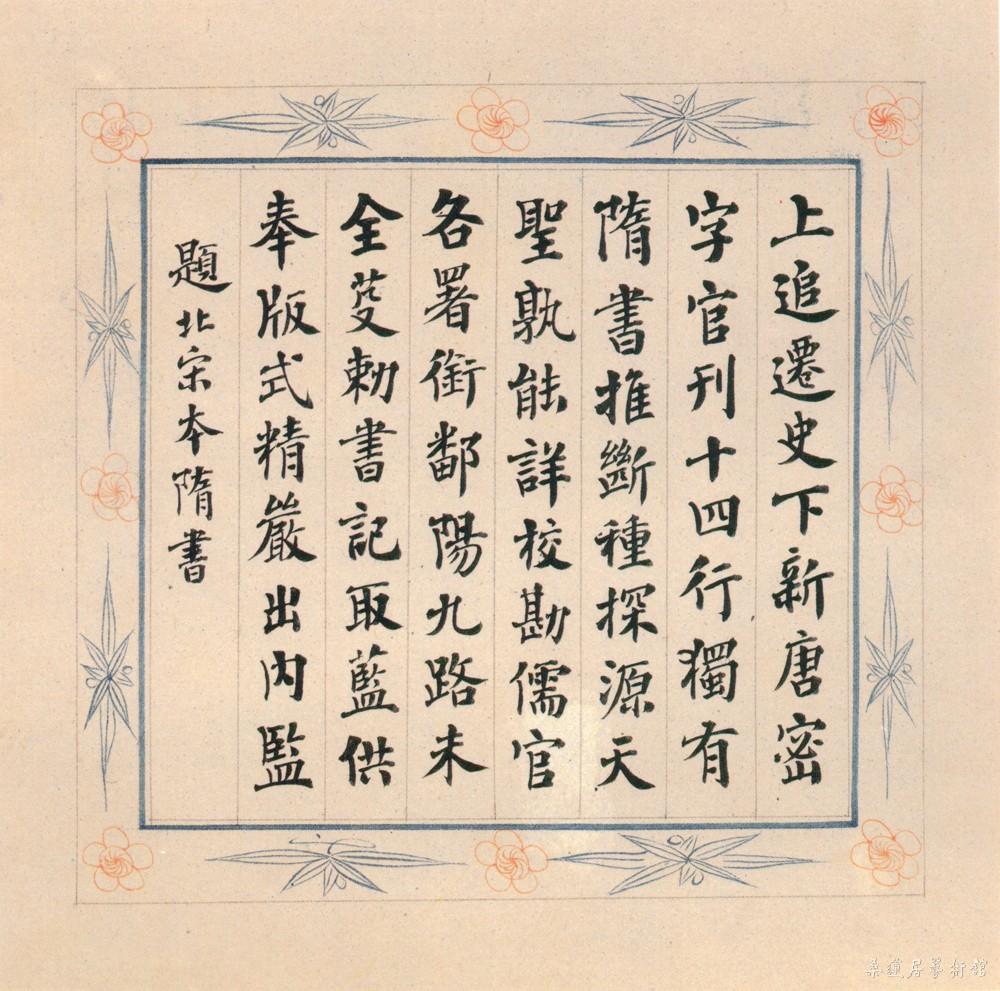 上追遷史下新唐密
字官刊十四行獨有
隋書推斷種探源天
聖孰能詳校勘儒官
各署銜鄱陽九路未
全芟勅書記取藍供
奉版式精嚴出内監
題北宋本隋書
桑蓮居藝術館